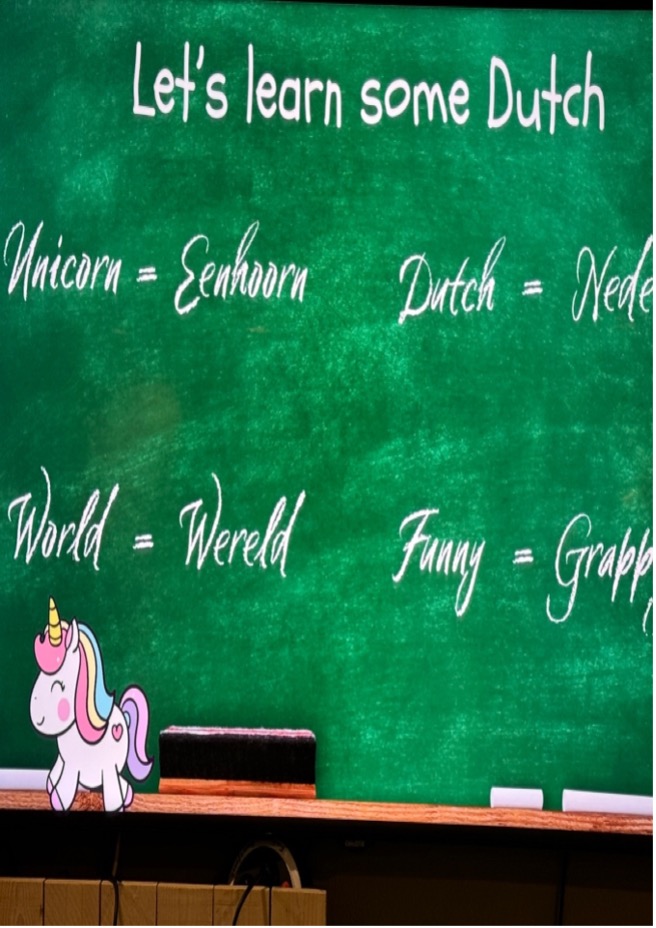 Let's learn some Dutch
Unicorn = Eenhoorn
Dutch = Nede
World = Wereld
Funny = Grapp